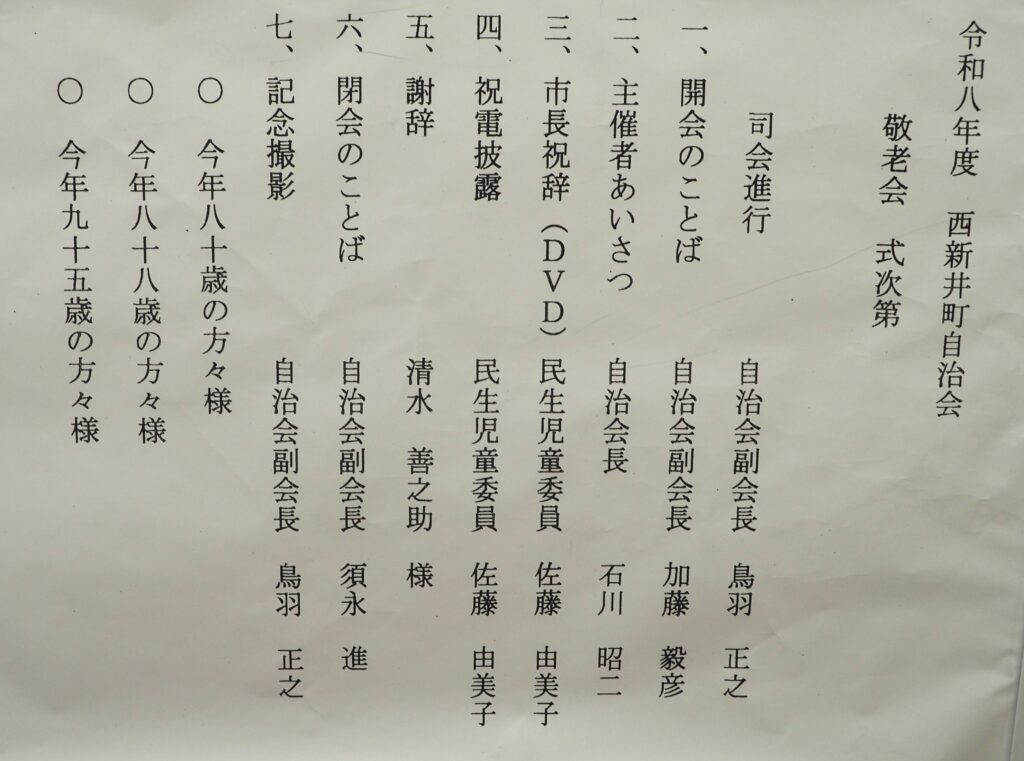 令和八年度　西新井町自治会
敬老会　式次第
司会進行　自治会副会長　鳥羽　正之
一、開会のことば　自治会副会長　加藤　毅彦
二、主催者あいさつ　自治会長　石川　昭二
三、市長祝辞（ＤＶＤ）　民生児童委員　佐藤　由美子
四、祝電披露　民生児童委員　佐藤　由美子
五、謝辞　清水　善之助　様
六、閉会のことば　自治会副会長　須永　進
七、記念撮影　自治会副会長　鳥羽　正之
〇　今年八十歳の方々様
〇　今年八十八歳の方々様
〇　今年九十五歳の方々様